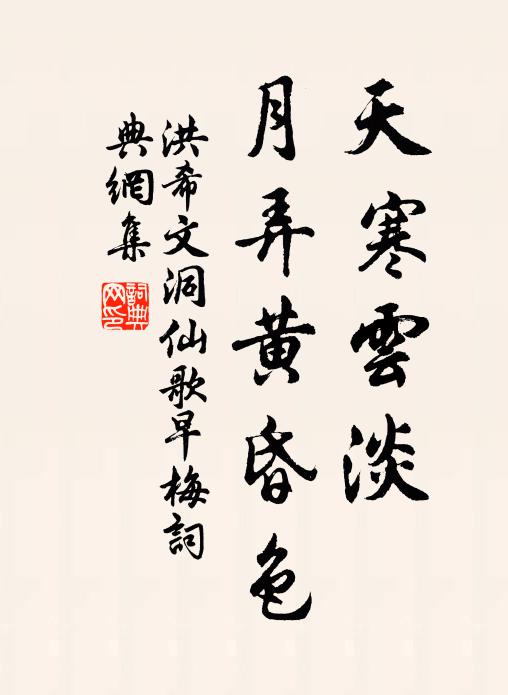 天寒雲淡
月弄黃昏色
洪希文洞仙歌早梅詞
典網集
詞典網印